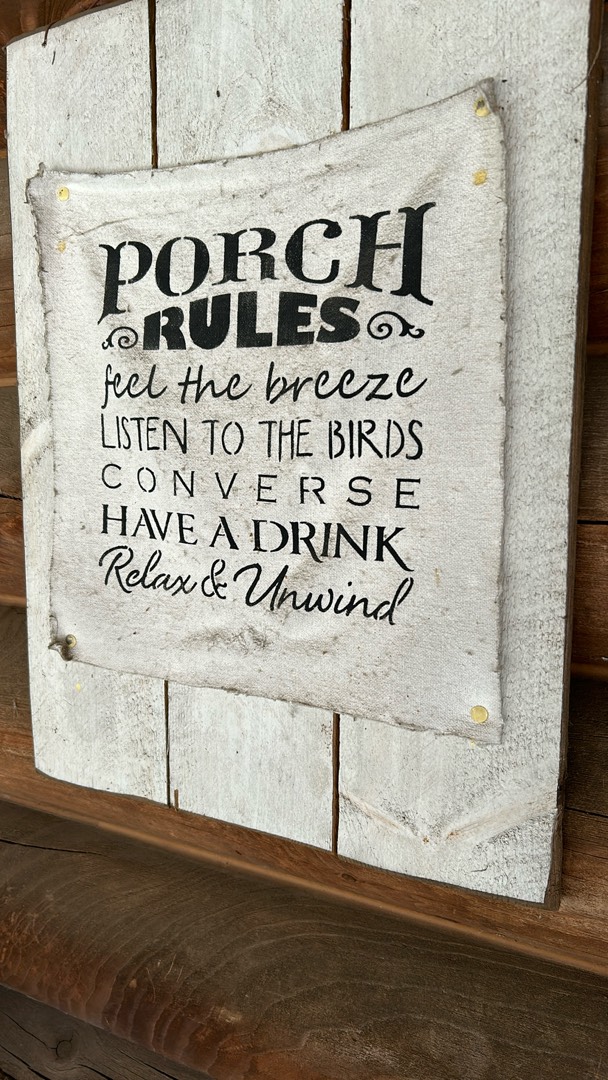 PORCH
RULES
feel the breeze
LISTEN TO THE BIRDS
CONVERSE
HAVE A DRINK
Relax & Unwind